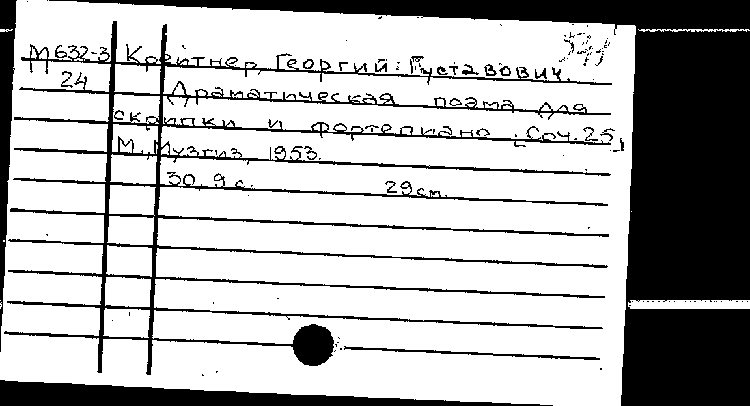 М632-3 Крейтнер, Георгий Густавович.
24 Драматическая поэма для
скрипки и фортепиано [Соч. 25]
М., Музгиз, 1953.
30, 9 с. 29 см.